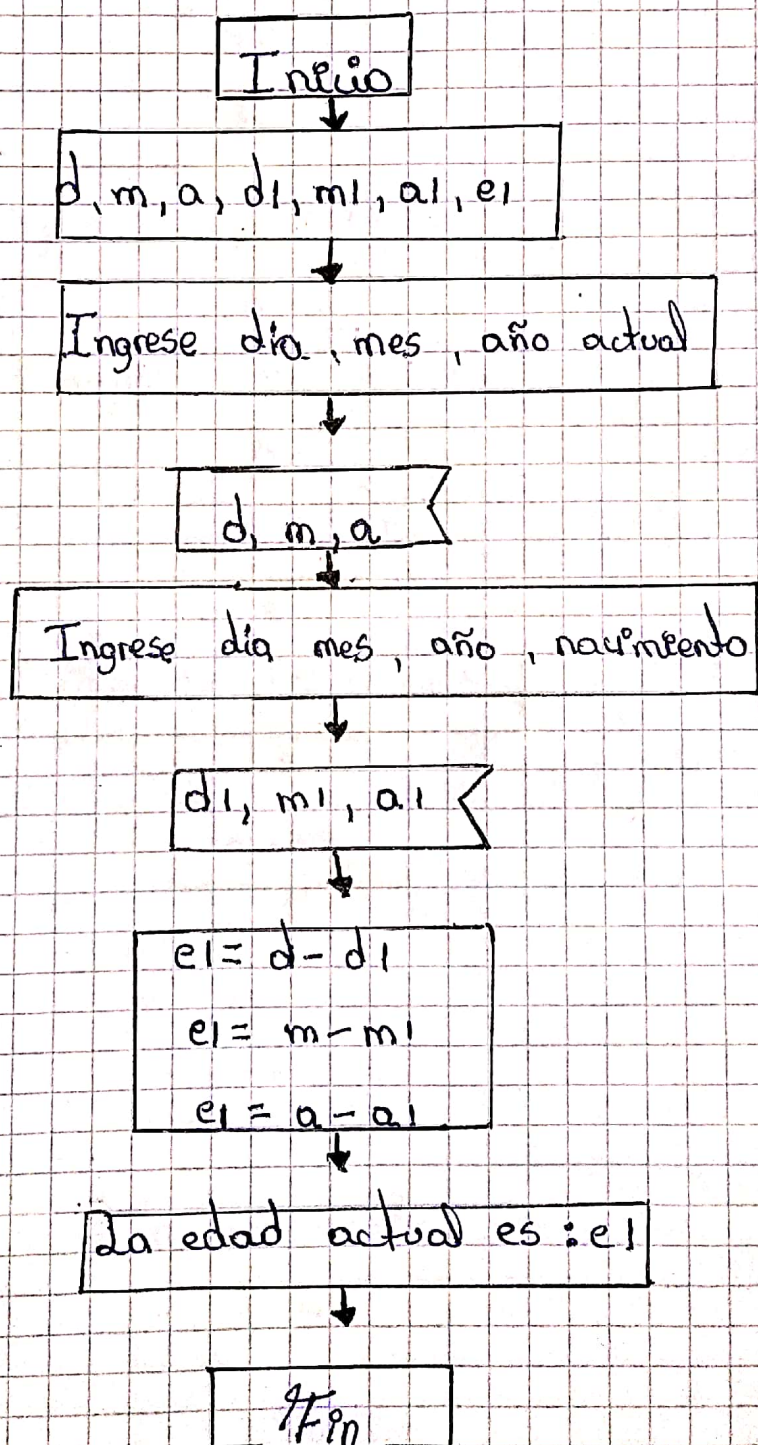 Inicio
d, m, a, d1, m1, a1, e1
Ingrese dia, mes, año actual
d, m, a
Ingrese dia mes, año, nacimiento
d1, m1, a1
e1 = d - d1
e1 = m - m1
e1 = a - a1
La edad actual es : e1
Fin